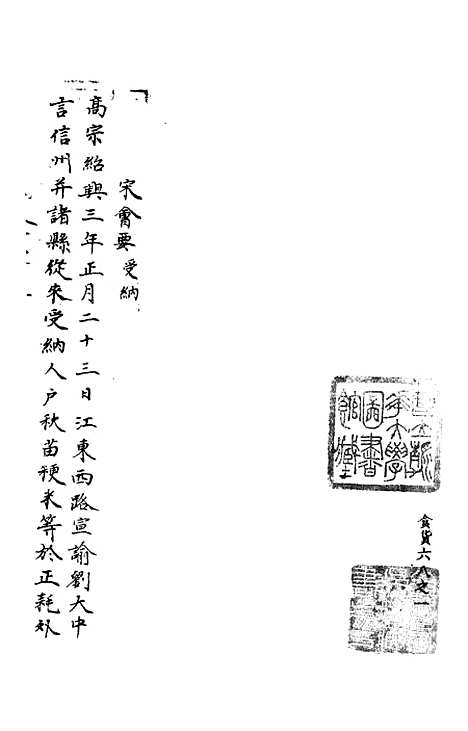 食貨六八之一
宋會要 受納
高宗紹興三年正月二十三日江東西路宣諭劉大中
言信州并諸縣從來受納人户秋苗粳米等於正耗外